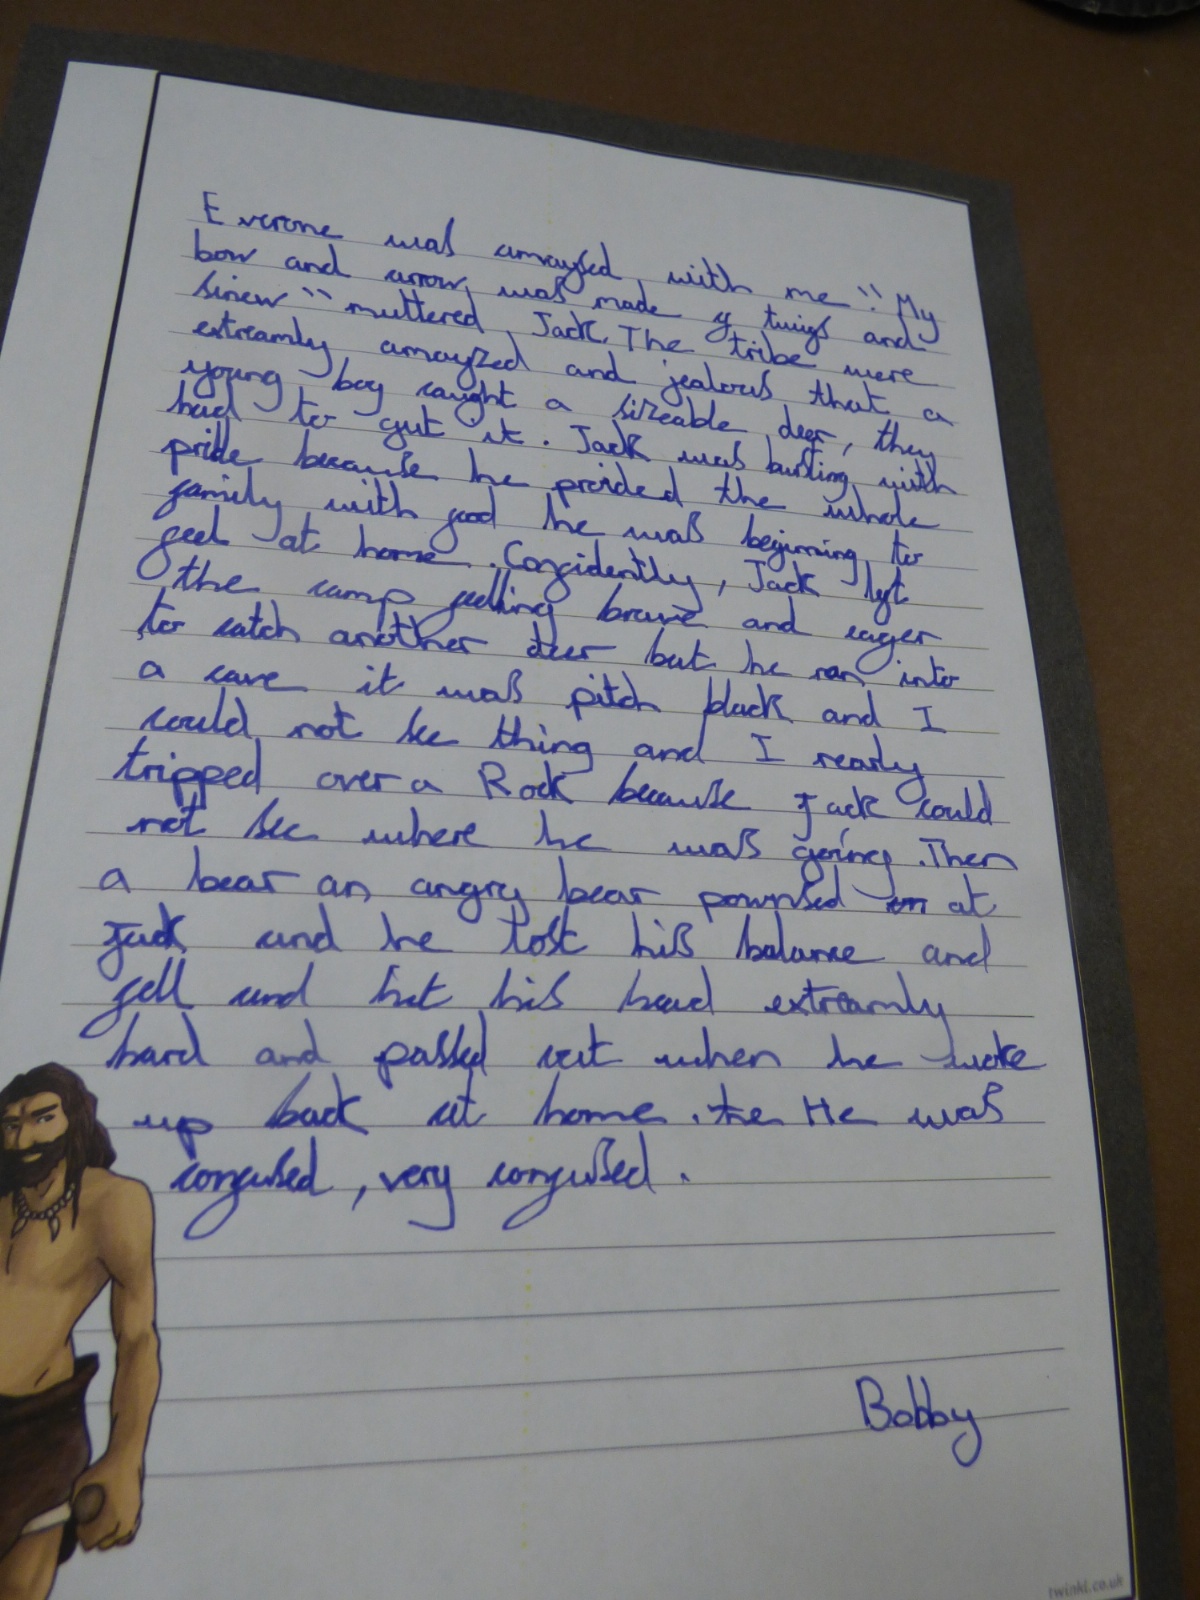 Everone was amaysed with me "My
bow and arrow was made of twigs and
sinew" muttered Jack. The tribe were
extreamly amayzed and jealous that a
young boy caught a sizeable deer, they
had to gut it. Jack was busting with
pride because he prorided the whole
family with food he was beginning to
feel at home. Confidently, Jack left
the camp felling brave and eager
to catch another deer but he ran into
a cave it was pitch black and I
could not see thing and I nearly
tripped over a Rock because Jack could
not see where he was going. Then
a bear an angry bear pownsed at
Jack and he lost his balance and
fell and hit his head extreamly
hard and passed out when he woke
up back at home. He was
confused, very confused.
Bobby
twinkl.co.uk